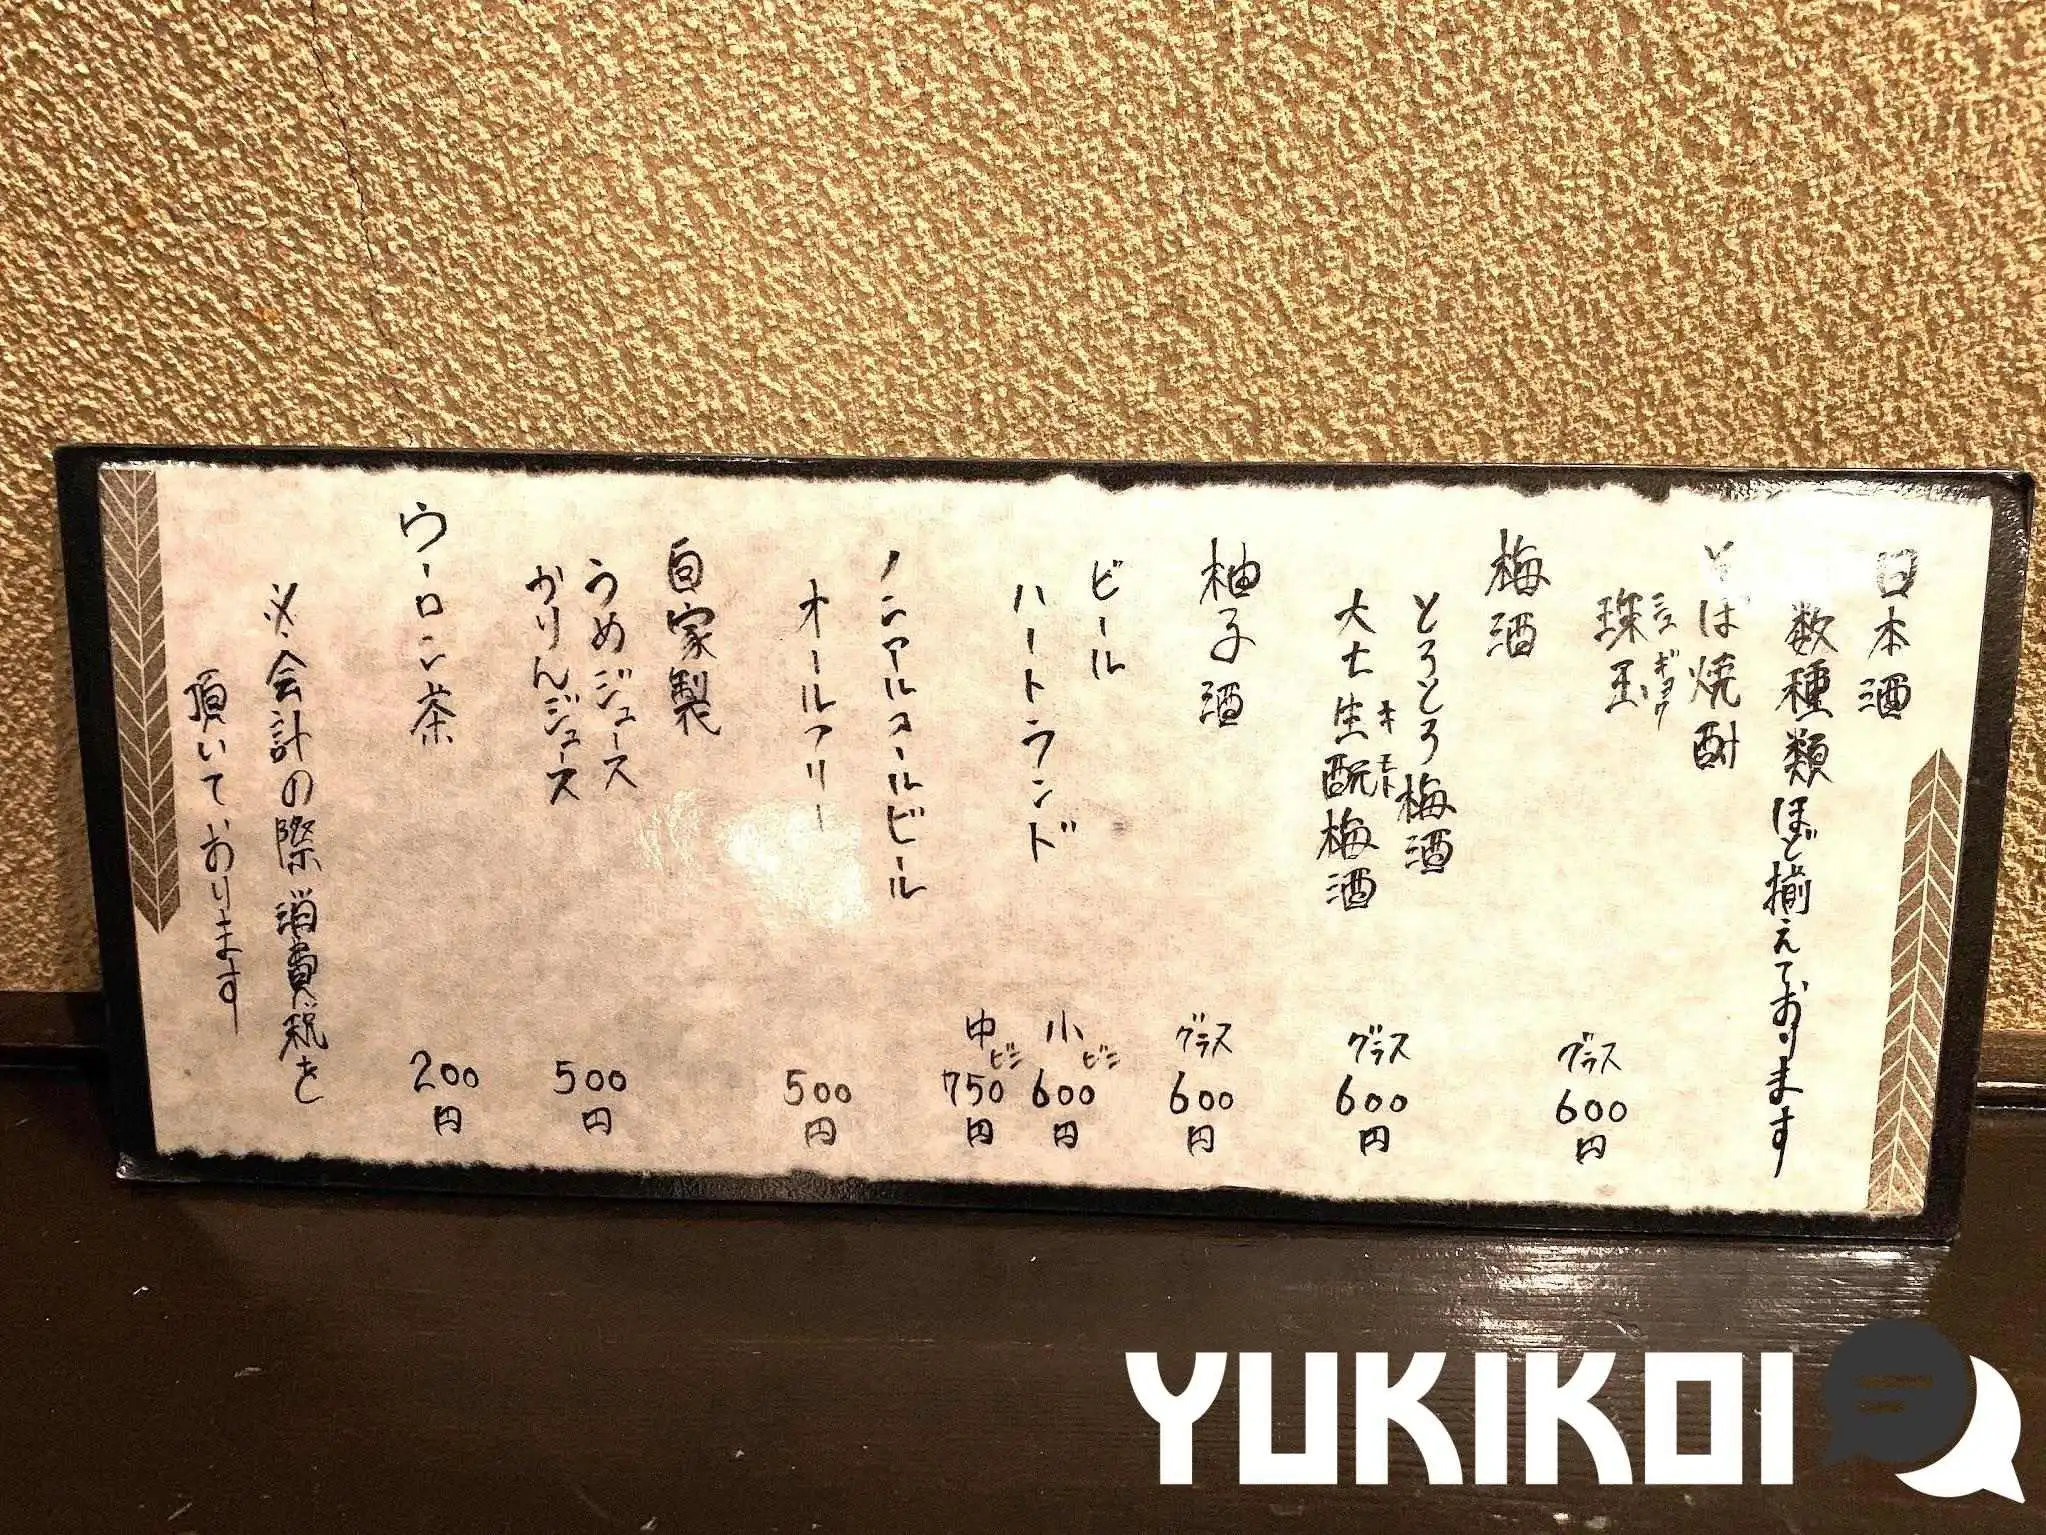 日本酒
数種類ほど揃えております
そば焼酎
珠玉
シュギョク
グラス
600円
梅酒
とろとろ梅酒
大七生酛梅酒
キモト
グラス
600円
柚子酒
グラス
600円
ビール
ハートランド
小ビン
600円
中ビン
750円
ノンアルコールビール
オールフリー
500円
自家製
うめジュース
かりんジュース
500円
ウーロン茶
200円
※会計の際消費税を
頂いております
YUKIKOI